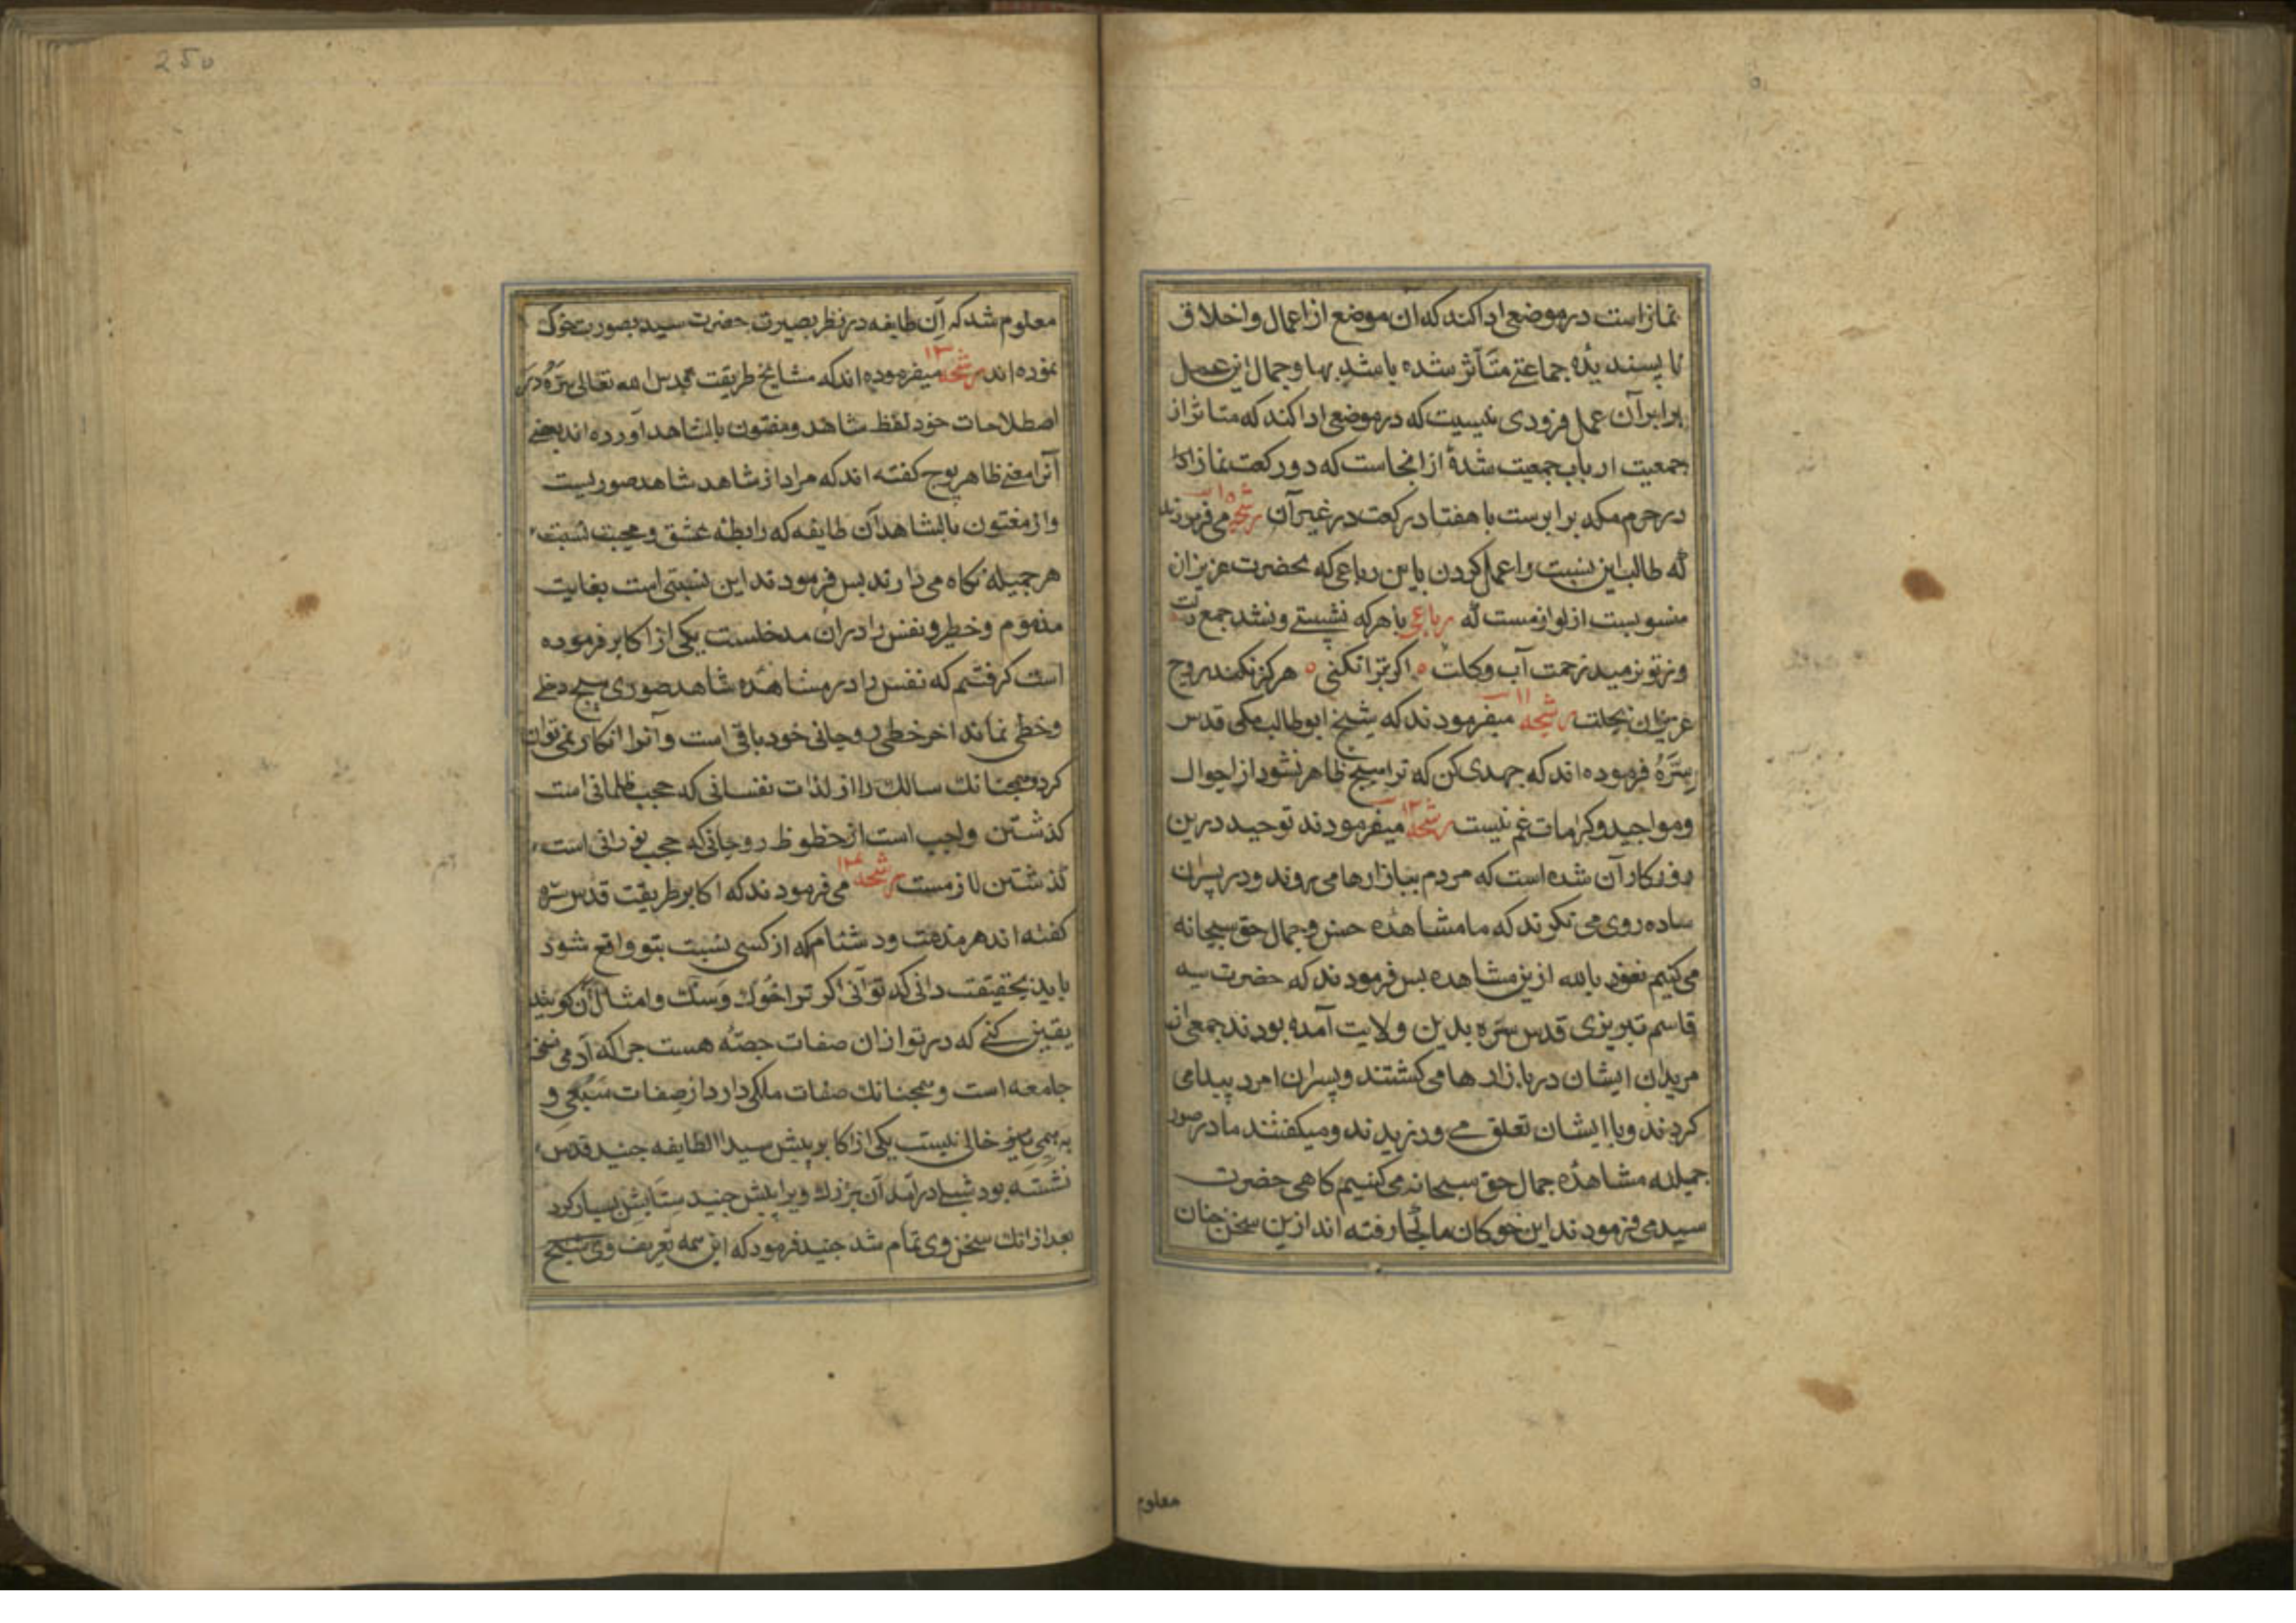 نمازاست درموضعی اداکند که آن موضع از اعمال واخلاق
ناپسندیدهٔ جماعتے متأثر شده باشد بها وجمال این عمل
برابر آن عمل فرودی نیست که درموضعی اداکند که متاثر از
جمعیت ارباب جمعیت شدهٔ از انجاست که دو رکعت نماز ادا
در حرم مکه برابرست با هفتاد رکعت در غیر آن رشحه ۱۰ می فرمودند
که طالب این نسبت را عمل کردن باین رباعی که بحضرت عزیزان
منسوبست از لوازمست که رباعی با هرکه نشستے ونشد جمع دلت
وز تو نرمید زحمت آب وکلت ه اکر تبرا نکنی ه هرکز نکند روح
عزیزان بحلت رشحه ۱۱ میفرمودند که شیخ ابوطالب مکی قدس
سِتَرَهُ فرموده اند که جهدی کن که ترا هیج ظاهر نشود از احوال
ومواجید وکرامات غم نیست رشحه ۱۲ میفرمودند توحید درین
روزکار آن شده است که مردم ببازارها می روند ودر پسران
ساده روی می نکرند که ما مشاهدهٔ حسن وجمال حق سبحانه
می کنیم نعوذ بالله ازین مشاهده بس فرمودند که حضرت سید
قاسم تبریزی قدس سره بدین ولایت آمده بودند جمعی از
مریدان ایشان دربازارها می کشتند وپسران امرد پیدا می
کردند وبا ایشان تعلق مے ورزیدند ومیکفتند ما در صور
جمیله مشاهدهٔ جمال حق سبحانه می کنیم کاهی حضرت
سید می فرمودند این خوکان ما کجا رفته اند ازین سخن جنان
معلوم
250
معلوم شد که آن طایفه درنظر بصیرت حضرت سید بصورت خوک
نموده اند رشحه ۱۳ میفرموده اند که مشایخ طریقت قدس الله تعالی سره در
اصطلاحات خود لفظ شاهد ومفتون بالشاهد آورده اند بعضے
آنرا معنے ظاهر بوج کفته اند که مراد از شاهد شاهد صوریست
واز مفتون بالشاهد آن طایفه که رابطهٔ عشق ومحبت نسبت
هر جمیله نکاه می دارند بس فرمودند این نسبتی است بغایت
مذموم وخطر ونفس را دران مدخلست یکی از اکابر فرموده
است کرفتیم که نفس را در مشاهدهٔ شاهد صوری هیج دخلے
وخطی نماند اخر خطی روحانی خود باقی است وآنرا انکار نمی توان
کرد وهمجنانک سالک را از لذات نفسانی که حجب ظلمانی است
کذشتن واجب است از حظوظ روحانی که حجب نورانی است
کذشتن لازمست رشحه ۱۴ می فرمودند که اکابر طریقت قدس سره
کفته اند هر مذمت ودشنام که از کسی نسبت بتو واقع شود
باید بحقیقت دانی که تو آنی اکر ترا خوک وسک وامثال آن کویند
یقین کنے که در تو از ان صفات حصّهٔ هست جرا که آدمی نسخهٔ
جامعه است وهمجنانک صفات ملکی دارد از صفات سَبُعی و
بهیمی نیز خالی نیست یکی از اکابر پیش سید الطایفه جنید قدس
نشسته بود شبلے درآمد آن بزرک ویرا پیش جنید ستایش بسیار کرد
بعد از انک سخن وی تمام شد جنید فرمود که این همه تعریف وی هیج